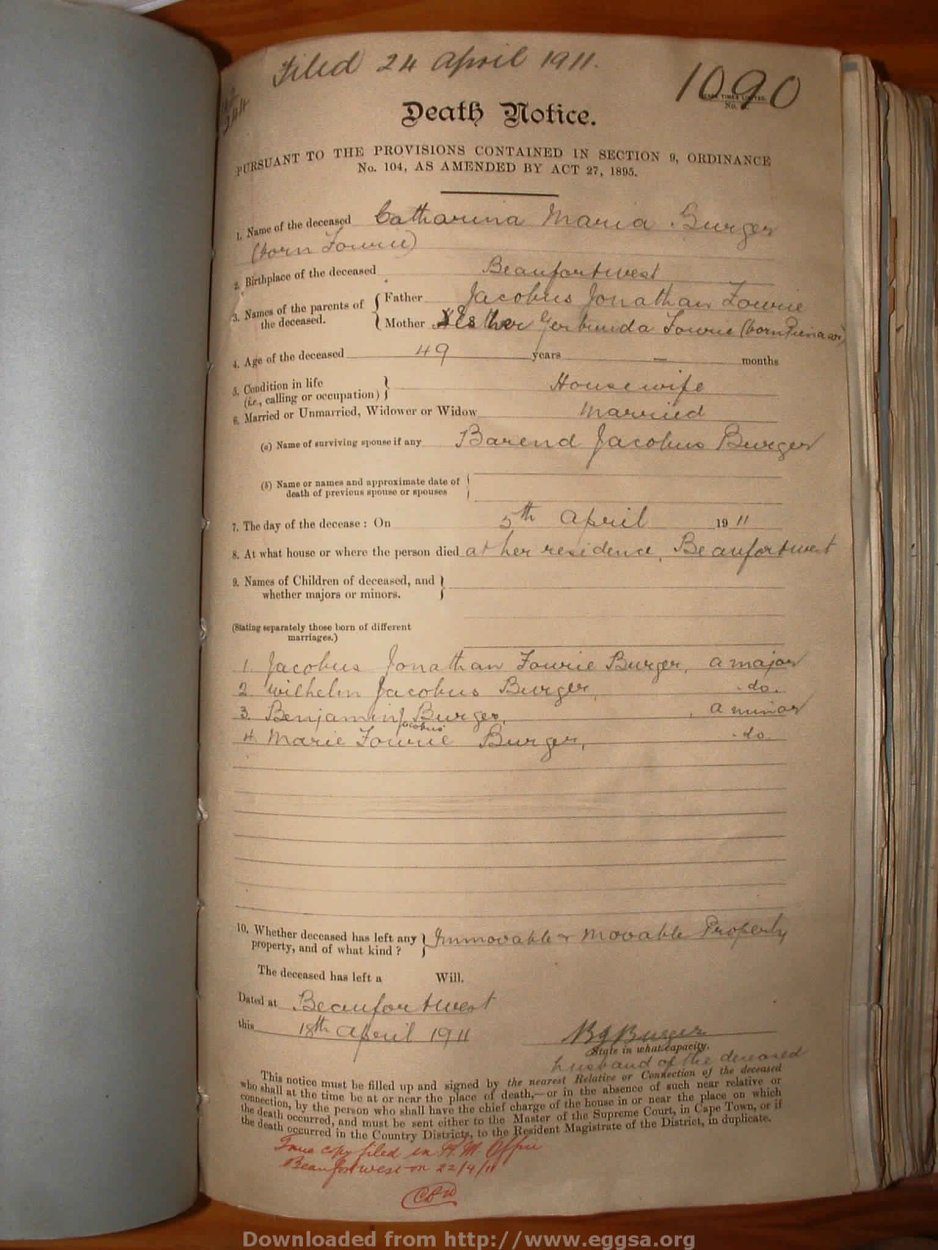 Filed 24 April 1911.
1090
Death Notice.
PURSUANT TO THE PROVISIONS CONTAINED IN SECTION 9, ORDINANCE
No. 104, AS AMENDED BY ACT 27, 1895.
1. Name of the deceased Catharina Maria Burger
(born Fourie)
2. Birthplace of the deceased Beaufortwest
3. Names of the parents of the deceased. Father Jacobus Jonathan Fourie
Mother Esther Gertruida Fourie (born Pienaar)
4. Age of the deceased 49 years — months
5. Condition in life
(i.e., calling or occupation) Housewife
6. Married or Unmarried, Widower or Widow Married
(a) Name of surviving spouse if any Barend Jacobus Burger
(b) Name or names and approximate date of
death of previous spouse or spouses
7. The day of the decease: On 5th April 1911
8. At what house or where the person died at her residence, Beaufortwest
9. Names of Children of deceased, and
whether majors or minors.
(Stating separately those born of different
marriages.)
1. Jacobus Jonathan Fourie Burger, a major
2. Wilhelm Jacobus Burger, do.
3. Benjamin Jacobus Burger, a minor
4. Marie Fourie Burger, do.
10. Whether deceased has left any
property, and of what kind? Immovable & Movable Property
The deceased has left a Will.
Dated at Beaufortwest
this 18th April 1911
BJBurger
State in what capacity.
husband of the deceased
This notice must be filled up and signed by the nearest Relative or Connection of the deceased
who shall at the time be at or near the place of death,—or in the absence of such near relative or
connection, by the person who shall have the chief charge of the house in or near the place on which
the death occurred, and must be sent either to the Master of the Supreme Court, in Cape Town, or if
the death occurred in the Country Districts, to the Resident Magistrate of the District, in duplicate.
True copy filed in R M Office
Beaufortwest on 22/4/11
Downloaded from http://www.eggsa.org